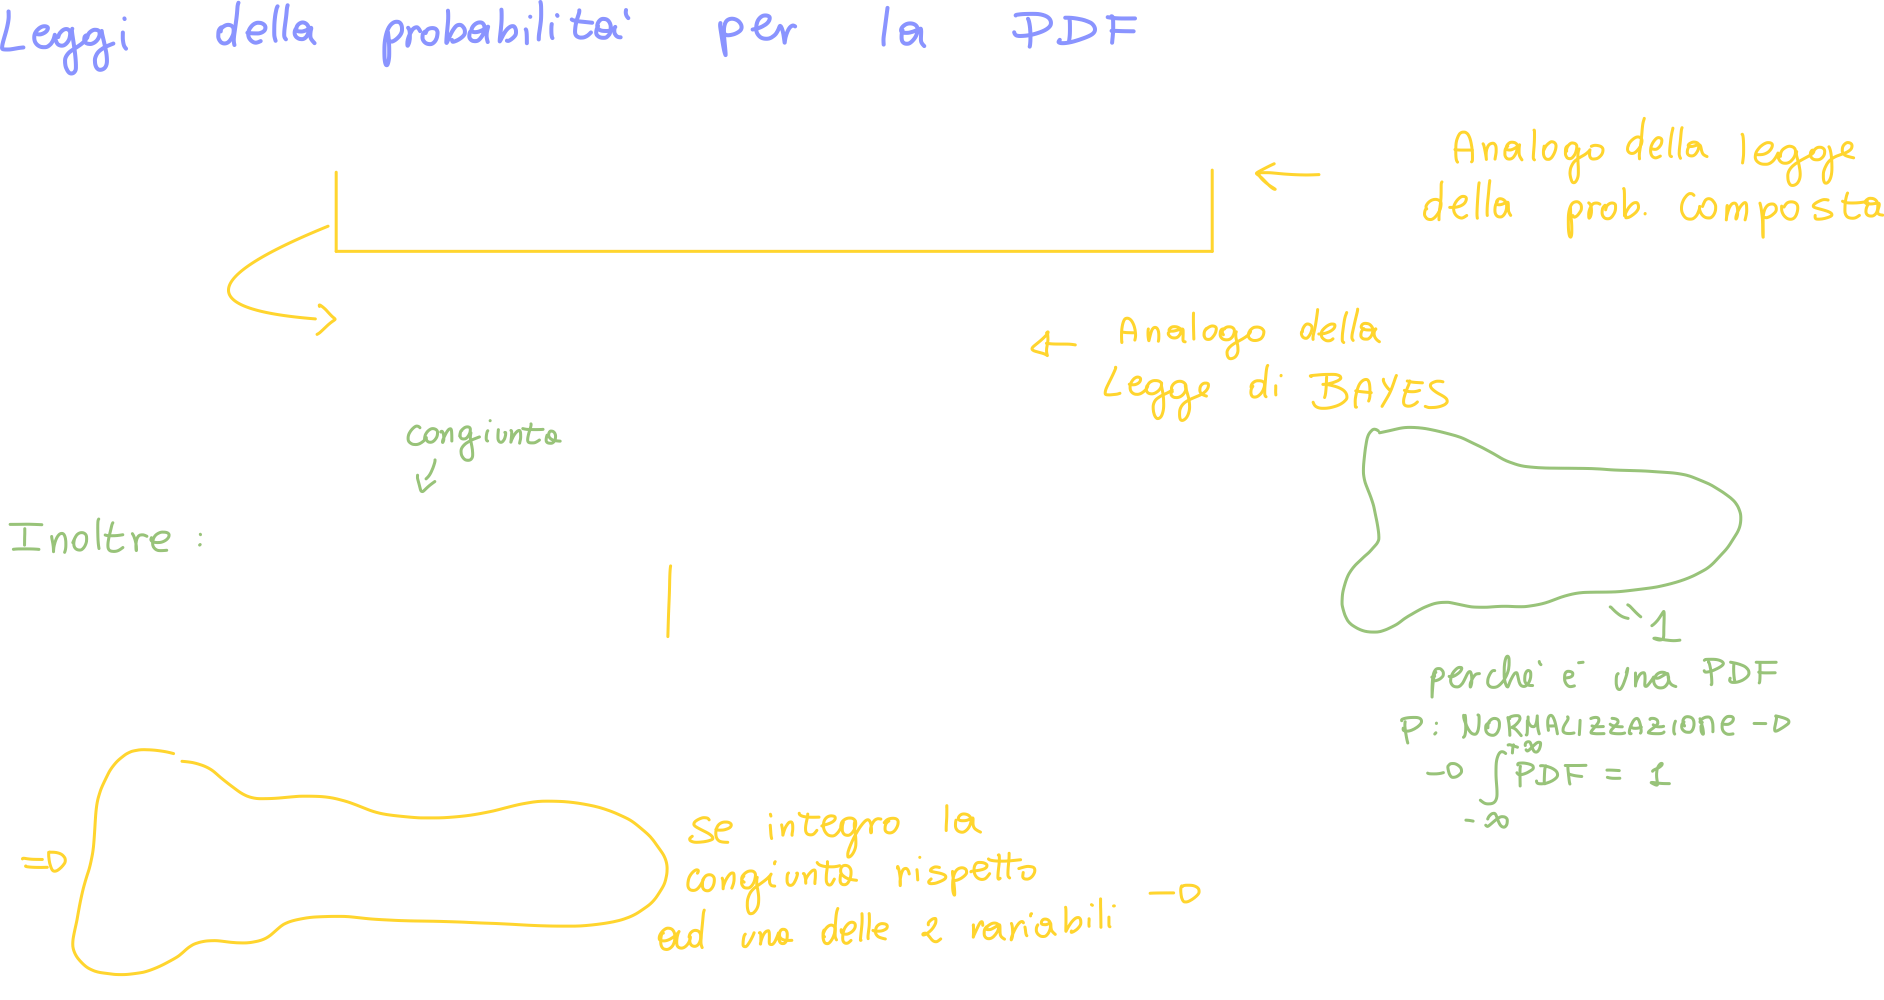 Leggi della probabilità per la PDF
← Analogo della legge
della prob. composta
← Analogo della
Legge di BAYES
congiunta
Inoltre :
1
perché è una PDF
P: NORMALIZZAZIONE →
→ ∫ PDF = 1
+∞
-∞
⇒
se integro la
congiunta rispetto
ad una delle 2 variabili →